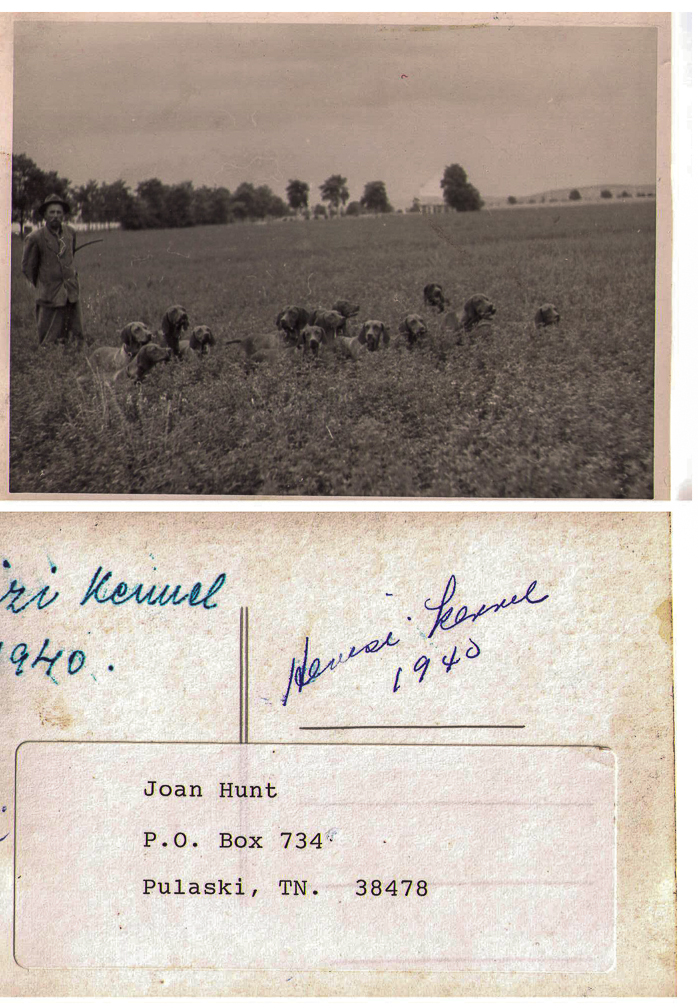 zi kennel
1940.
Hevesi kennel
1940
Joan Hunt
P.O. Box 734
Pulaski, TN. 38478